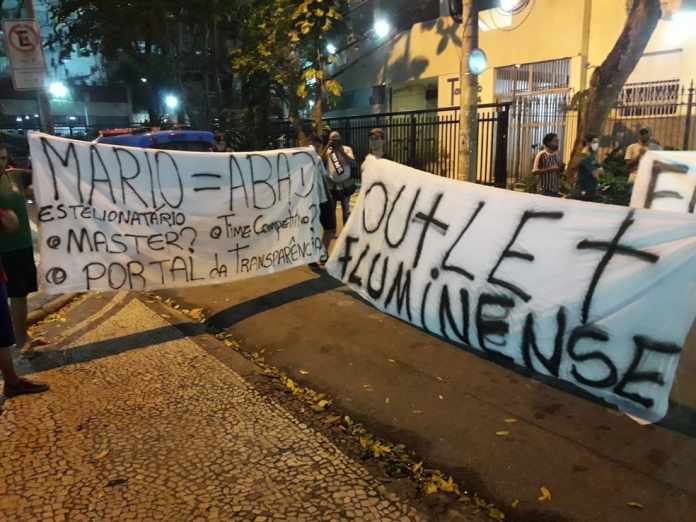 MARIO = ABAD
ESTELIONATÁRIO
MASTER? Time Competitivo?
PORTAL da TRANSPARÊNCIA
OUtLEt
FLUMINENSE
E